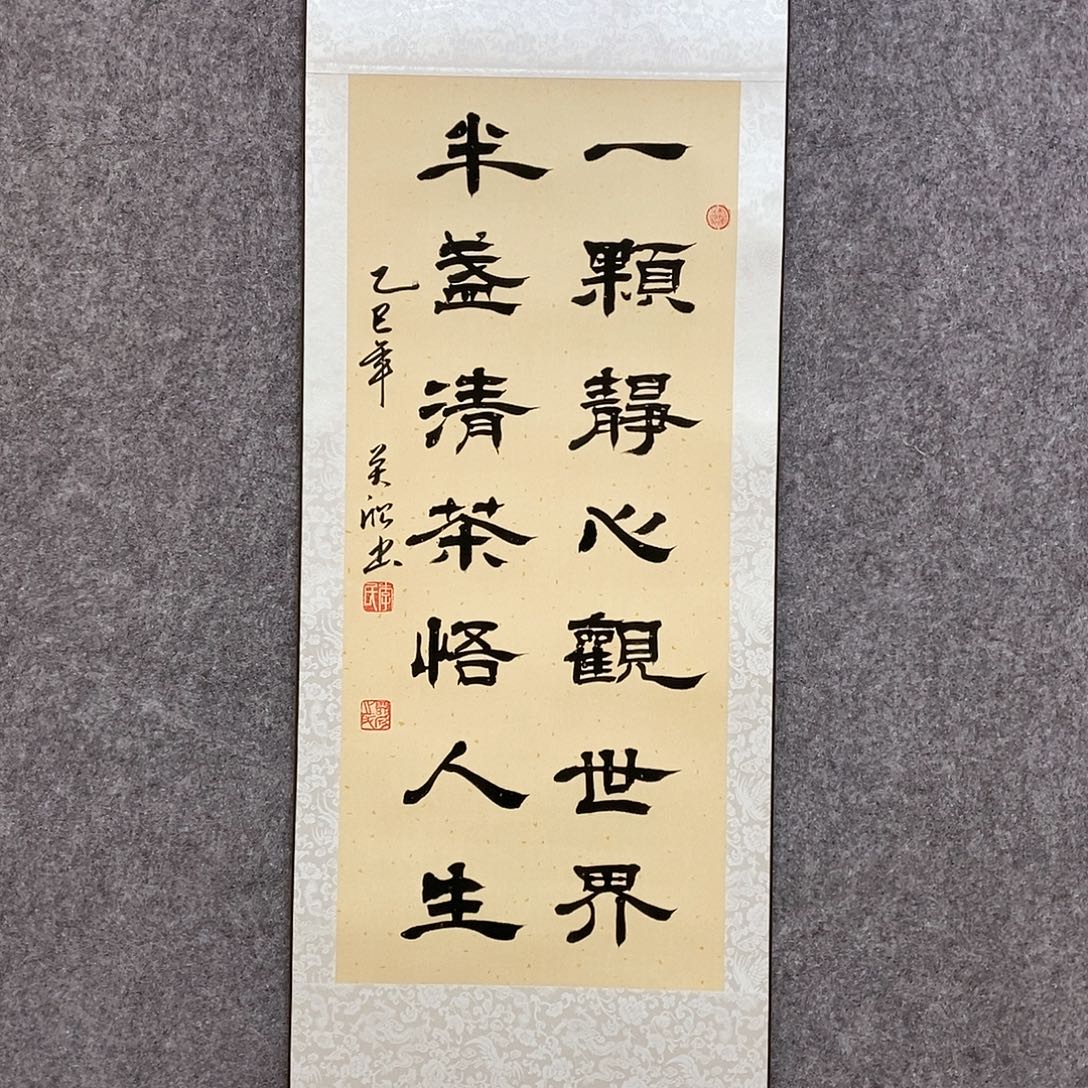 一顆靜心觀世界
半盞清茶悟人生
乙巳年
書